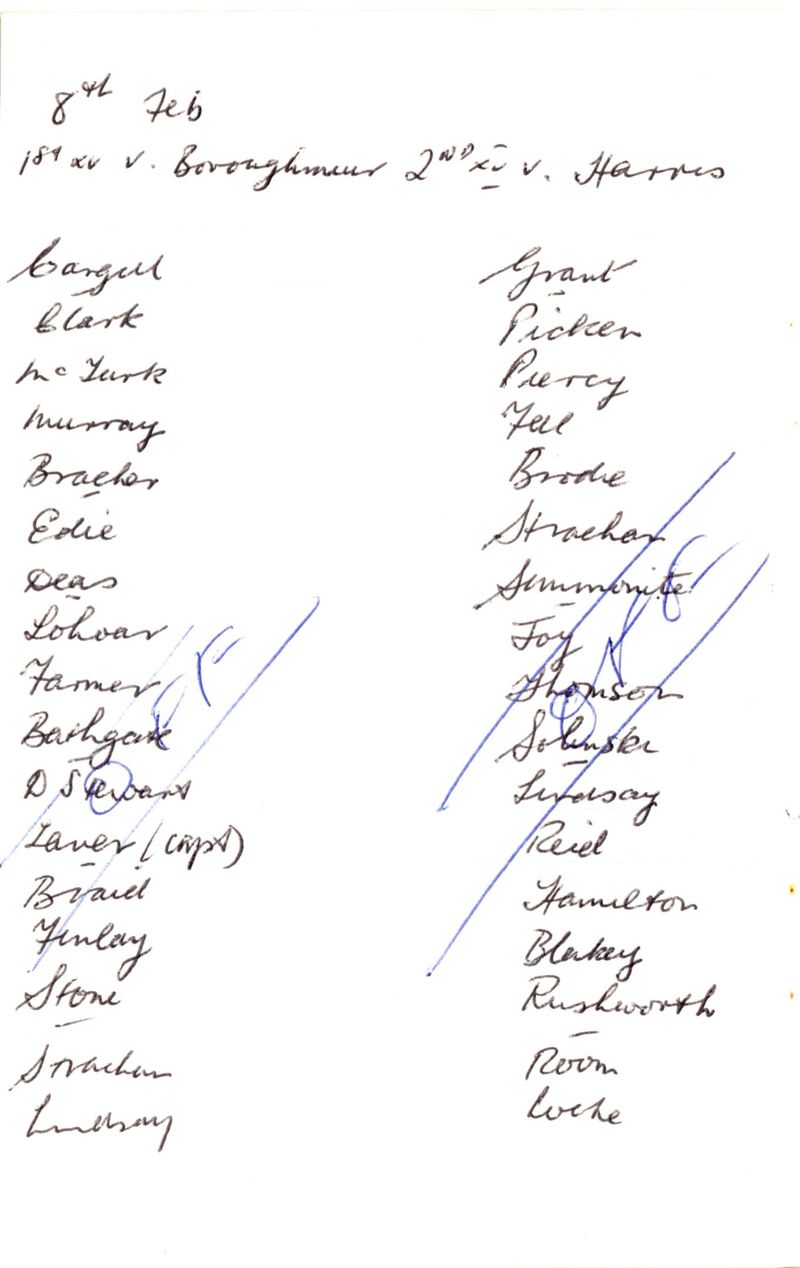 8th Feb
1st xv v. Boroughmuir 2ND xv v. Harris
Cargill
Clark
McTurk
Murray
Bracher
Edie
Deas
Farmer
Bathgate
D Stewart
Laver (capt)
Braid
Finlay
Stone
Strachan
Lindsay
Grant
Picken
Piercy
Fell
Brodie
Strachan
Joy
Thomson
Solinski
Lindsay
Reid
Hamilton
Blakey
Rushworth
Room
Locke
OFF
OFF